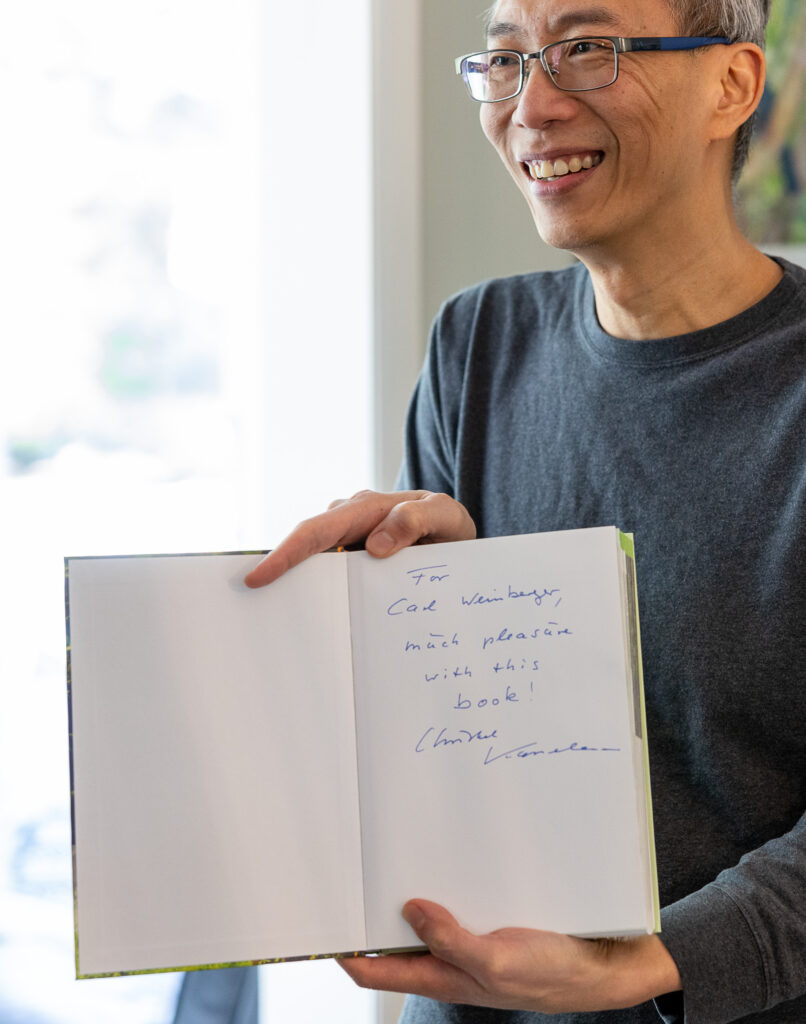 For
Carl Weinberger,
much pleasure
with this
book!
Christel